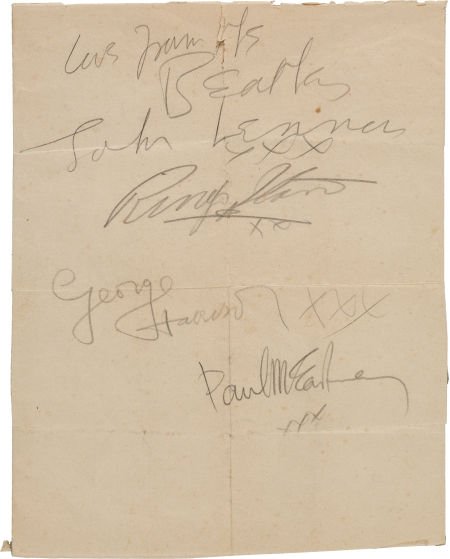 love from the
Beatles
John Lennon
xxx
Ringo Starr
xx
George
Harrison xxx
Paul McCartney
xxx